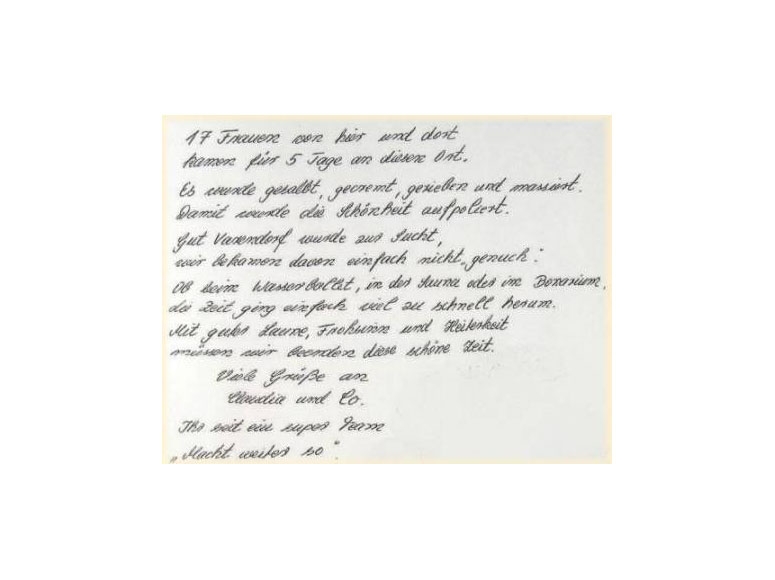 17 Frauen von hier und dort
kamen für 5 Tage an diesen Ort.
Es wurde gesalbt, gecremt, gerieben und massiert.
Damit wurde die Schönheit aufpoliert.
Gut Varendorf wurde zur Sucht,
wir bekamen davon einfach nicht „genuch“.
Ob beim Wasserballet, in der Sauna oder im Bonarium,
die Zeit ging einfach viel zu schnell herum.
Mit guter Laune, Frohsinn und Heiterkeit
müssen wir beenden diese schöne Zeit.
Viele Grüße an
Claudia und Co.
Ihr seit ein super Team
„Macht weiter so“.